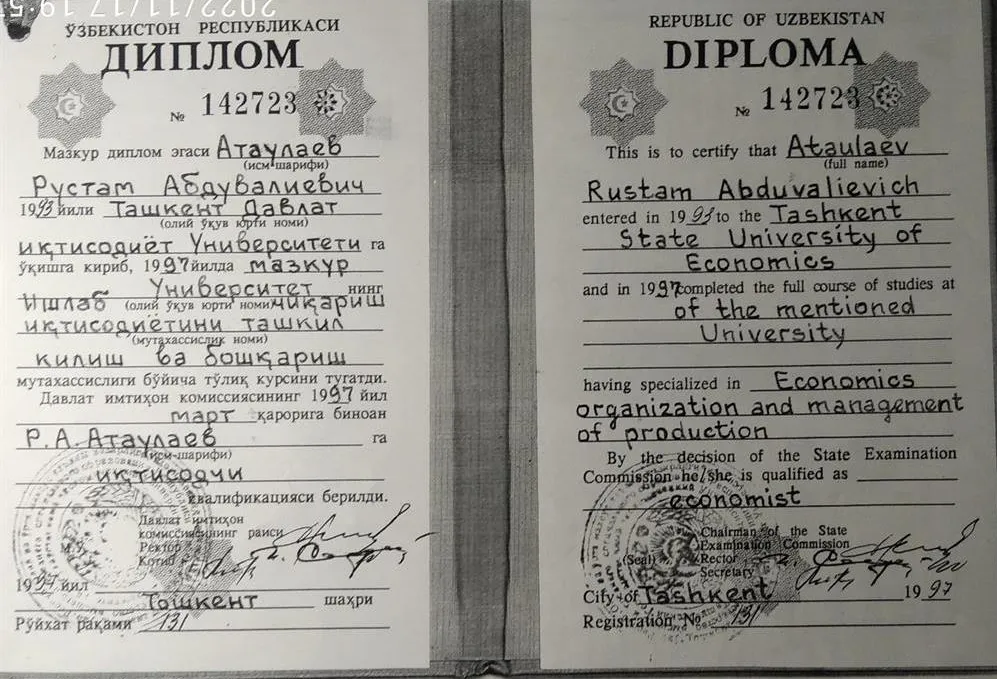 2022/11/17 19:5
ЎЗБЕКИСТОН РЕСПУБЛИКАСИ
ДИПЛОМ
№ 142723
Мазкур диплом эгаси Атаулаев
(исм-шарифи)
Рустам Абдувалиевич
1993 йили Ташкент Давлат
(олий ўқув юрти номи)
иқтисодиёт Университети га
ўқишга кириб, 1997 йилда мазкур
Университет нинг
Ишлаб (олий ўқув юрти номи) чиқариш
иқтисодиётини ташкил
(мутахассислик номи)
килиш ва бошқариш
мутахассислиги бўйича тўлиқ курсини тугатди.
Давлат имтиҳон комиссиясининг 1997 йил
март қарорига биноан
Р.А.Атаулаев га
(исм-шарифи)
иқтисодчи
квалификацияси берилди.
Давлат имтиҳон
комиссиясининг раиси
М.Ў. Ректор
Котиб
1997 йил
Тошкент шаҳри
Рўйхат рақами 131
REPUBLIC OF UZBEKISTAN
DIPLOMA
№ 142723
This is to certify that Ataulaev
(full name)
Rustam Abduvalievich
entered in 1993 to the Tashkent
State University of
Economics
and in 1997 completed the full course of studies at
of the mentioned
University
having specialized in Economics
organization and management
of production
By the decision of the State Examination
Commission he/she is qualified as
economist
Chairman of the State
Examination Commission
(Seal) Rector
Secretary
City of Tashkent 1997
Registration No 131